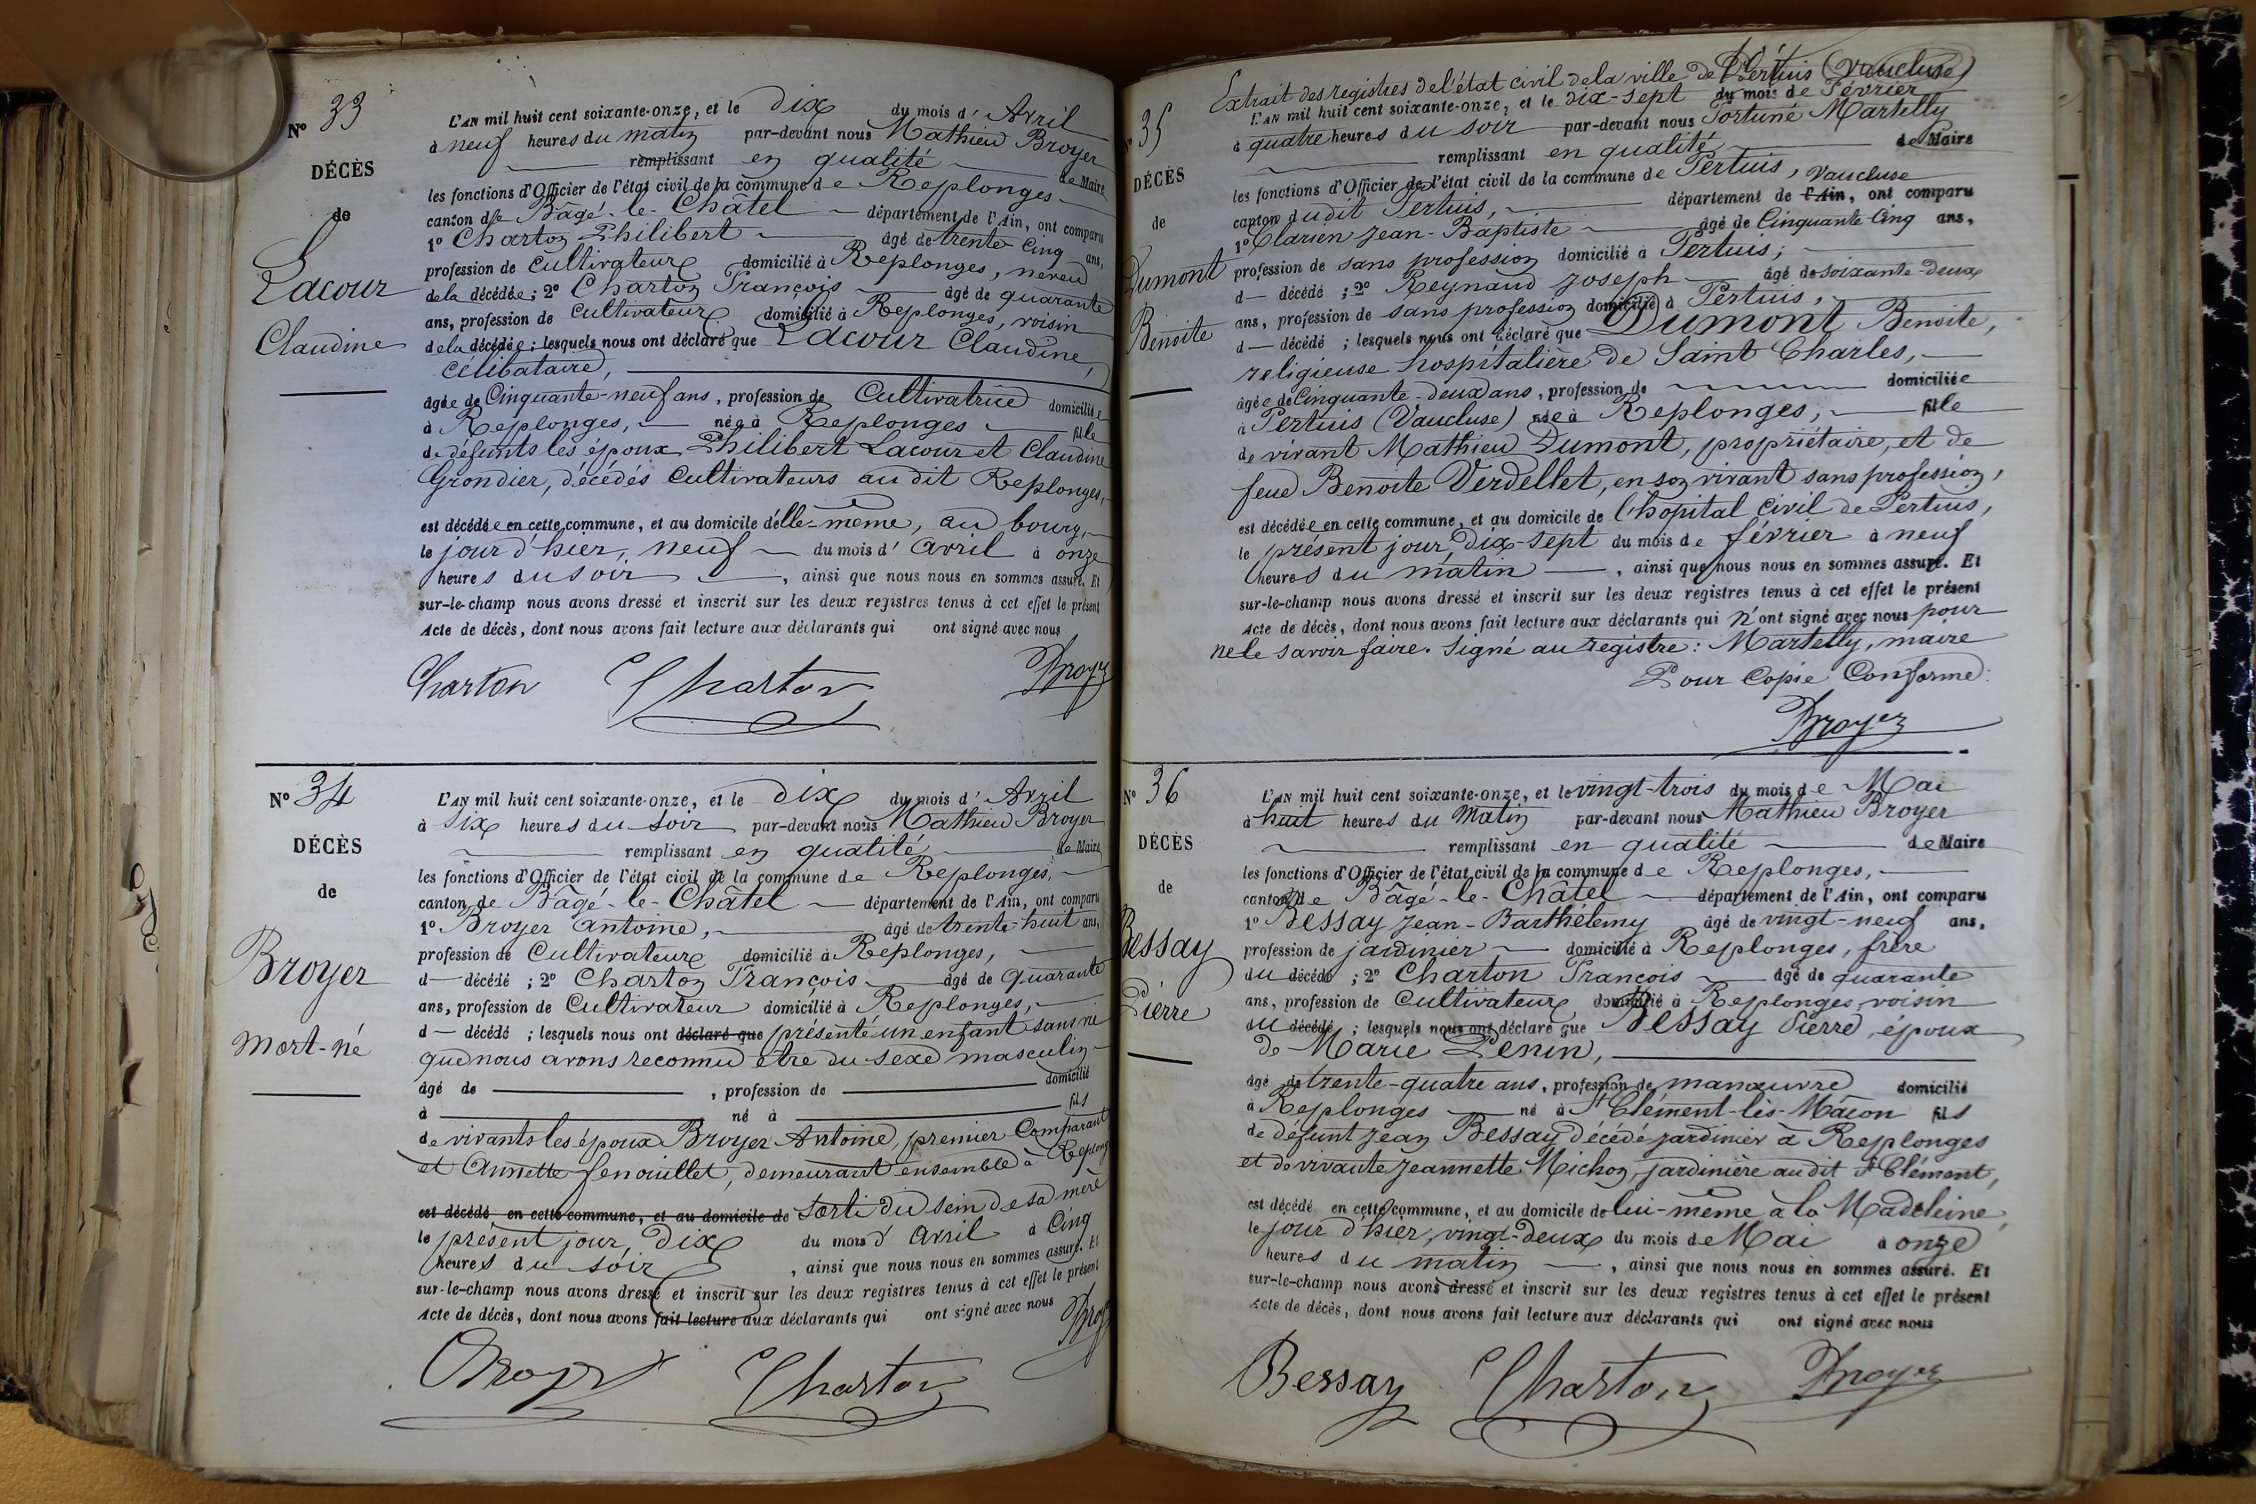 N° 33
DÉCÈS
de
Lacour
Claudine
L'AN mil huit cent soixante-onze, et le dix du mois d' Avril
à neuf heures du matin par-devant nous Mathieu Broyer
remplissant en qualité de Maire
les fonctions d'Officier de l'état civil de la commune de Replonges
canton de Bâgé-le-Châtel département de l'Ain, ont comparu
1° Charton Philibert âgé de trente cinq ans,
profession de cultivateur domicilié à Replonges, neveu
de la décédée ; 2° Charton François âgé de quarante
ans, profession de cultivateur domicilié à Replonges, voisin
de la décédée ; lesquels nous ont déclaré que Lacour Claudine,
célibataire,
âgée de Cinquante-neuf ans, profession de Cultivatrice domiciliée
à Replonges, née à Replonges fille
de défunts les époux Philibert Lacour et Claudine
Grondier, décédés cultivateurs au dit Replonges,
est décédée en cette commune, et au domicile d'elle-même, au bourg,
le jour d'hier, neuf du mois d' avril à onze
heures du soir, ainsi que nous nous en sommes assuré. Et
sur-le-champ nous avons dressé et inscrit sur les deux registres tenus à cet effet le présent
Acte de décès, dont nous avons fait lecture aux déclarants qui ont signé avec nous
Charton Charton Broyer
N° 34
DÉCÈS
de
Broyer
mort-né
L'AN mil huit cent soixante-onze, et le dix du mois d' Avril
à six heures du soir par-devant nous Mathieu Broyer
remplissant en qualité de Maire
les fonctions d'Officier de l'état civil de la commune de Replonges,
canton de Bâgé-le-Châtel département de l'Ain, ont comparu
1° Broyer Antoine, âgé de trente-huit ans,
profession de Cultivateur domicilié à Replonges,
d décédé ; 2° Charton François âgé de quarante
ans, profession de Cultivateur domicilié à Replonges,
d décédé ; lesquels nous ont déclaré que présenté un enfant sans vie
que nous avons reconnu être du sexe masculin
âgé de , profession de domicilié
à né à fils
de vivants les époux Broyer Antoine, premier Comparant
et Annette fenouillet, demeurant ensemble à Replonges
est décédé en cette commune, et au domicile de sorti du sein de sa mère
le présent jour, dix du mois d' avril à Cinq
heures du soir, ainsi que nous nous en sommes assuré. Et
sur-le-champ nous avons dressé et inscrit sur les deux registres tenus à cet effet le présent
Acte de décès, dont nous avons fait lecture aux déclarants qui ont signé avec nous
Broyer Charton Broyer
Extrait des registres de l'état civil de la ville de Pertuis (Vaucluse)
N° 35
DÉCÈS
de
Dumont
Benoite
L'AN mil huit cent soixante-onze, et le dix-sept du mois de Février
à quatre heures du soir par-devant nous Fortuné Martelly
remplissant en qualité de Maire
les fonctions d'Officier de l'état civil de la commune de Pertuis, Vaucluse
canton dudit Pertuis, département de l'Ain, ont comparu
1° Clarien Jean-Baptiste âgé de Cinquante-Cinq ans,
profession de sans profession domicilié à Pertuis,
d décédé ; 2° Reynaud Joseph âgé de soixante-deux
ans, profession de sans profession domicilié à Pertuis,
d décédé ; lesquels nous ont déclaré que Dumont Benoite,
religieuse hospitalière de Saint Charles,
âgée de Cinquante-deux ans, profession de domiciliée
à Pertuis (Vaucluse) née à Replonges, fille
de vivant Mathieu Dumont, propriétaire, et de
feue Benoite Verdellet, en son vivant sans profession,
est décédée en cette commune, et au domicile de l'hôpital civil de Pertuis,
le présent jour, dix-sept du mois de février à neuf
heures du matin, ainsi que nous nous en sommes assuré. Et
sur-le-champ nous avons dressé et inscrit sur les deux registres tenus à cet effet le présent
Acte de décès, dont nous avons fait lecture aux déclarants qui n'ont signé avec nous pour
ne le savoir faire. Signé au registre : Martelly, maire
Pour Copie Conforme :
Broyer
N° 36
DÉCÈS
de
Bessay
Pierre
L'AN mil huit cent soixante-onze, et le vingt-trois du mois de Mai
à huit heures du matin par-devant nous Mathieu Broyer
remplissant en qualité de Maire
les fonctions d'Officier de l'état civil de la commune de Replonges,
canton de Bâgé-le-Châtel département de l'Ain, ont comparu
1° Bessay Jean-Barthélemy âgé de vingt-neuf ans,
profession de jardinier domicilié à Replonges, frère
du décédé ; 2° Charton François âgé de quarante
ans, profession de Cultivateur domicilié à Replonges, voisin
du décédé ; lesquels nous ont déclaré que Bessay Pierre, époux
de Marie Penin,
âgé de trente-quatre ans, profession de manœuvre domicilié
à Replonges né à St Clément-lès-Mâcon fils
de défunt Jean Bessay décédé jardinier à Replonges
et de vivante Jeannette Michon, jardinière au dit St Clément,
est décédé en cette commune, et au domicile de lui-même à la Madeleine,
le jour d'hier, vingt-deux du mois de Mai à onze
heures du matin, ainsi que nous nous en sommes assuré. Et
sur-le-champ nous avons dressé et inscrit sur les deux registres tenus à cet effet le présent
Acte de décès, dont nous avons fait lecture aux déclarants qui ont signé avec nous
Bessay Charton Broyer